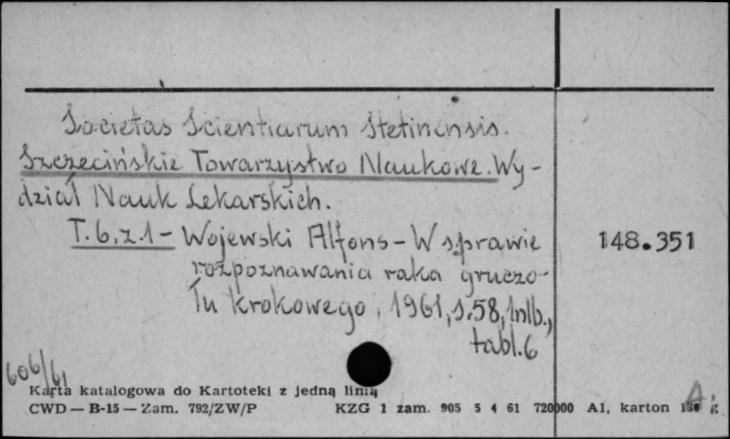 Societas Scientiarum Stetinensis.
Szczecińskie Towarzystwo Naukowe. Wy-
dział Nauk Lekarskich.
T.6, z.1 - Wojewski Alfons - W sprawie
148.351
rozpoznawania raka gruczo-
łu krokowego, 1961, s.58, 1nlb.,
tabl.6
606/61
Karta katalogowa do Kartoteki z jedną linią
CWD — B-15 — Zam. 792/ZW/P KZG 1 zam. 905 5 4 61 720000 A1, karton g